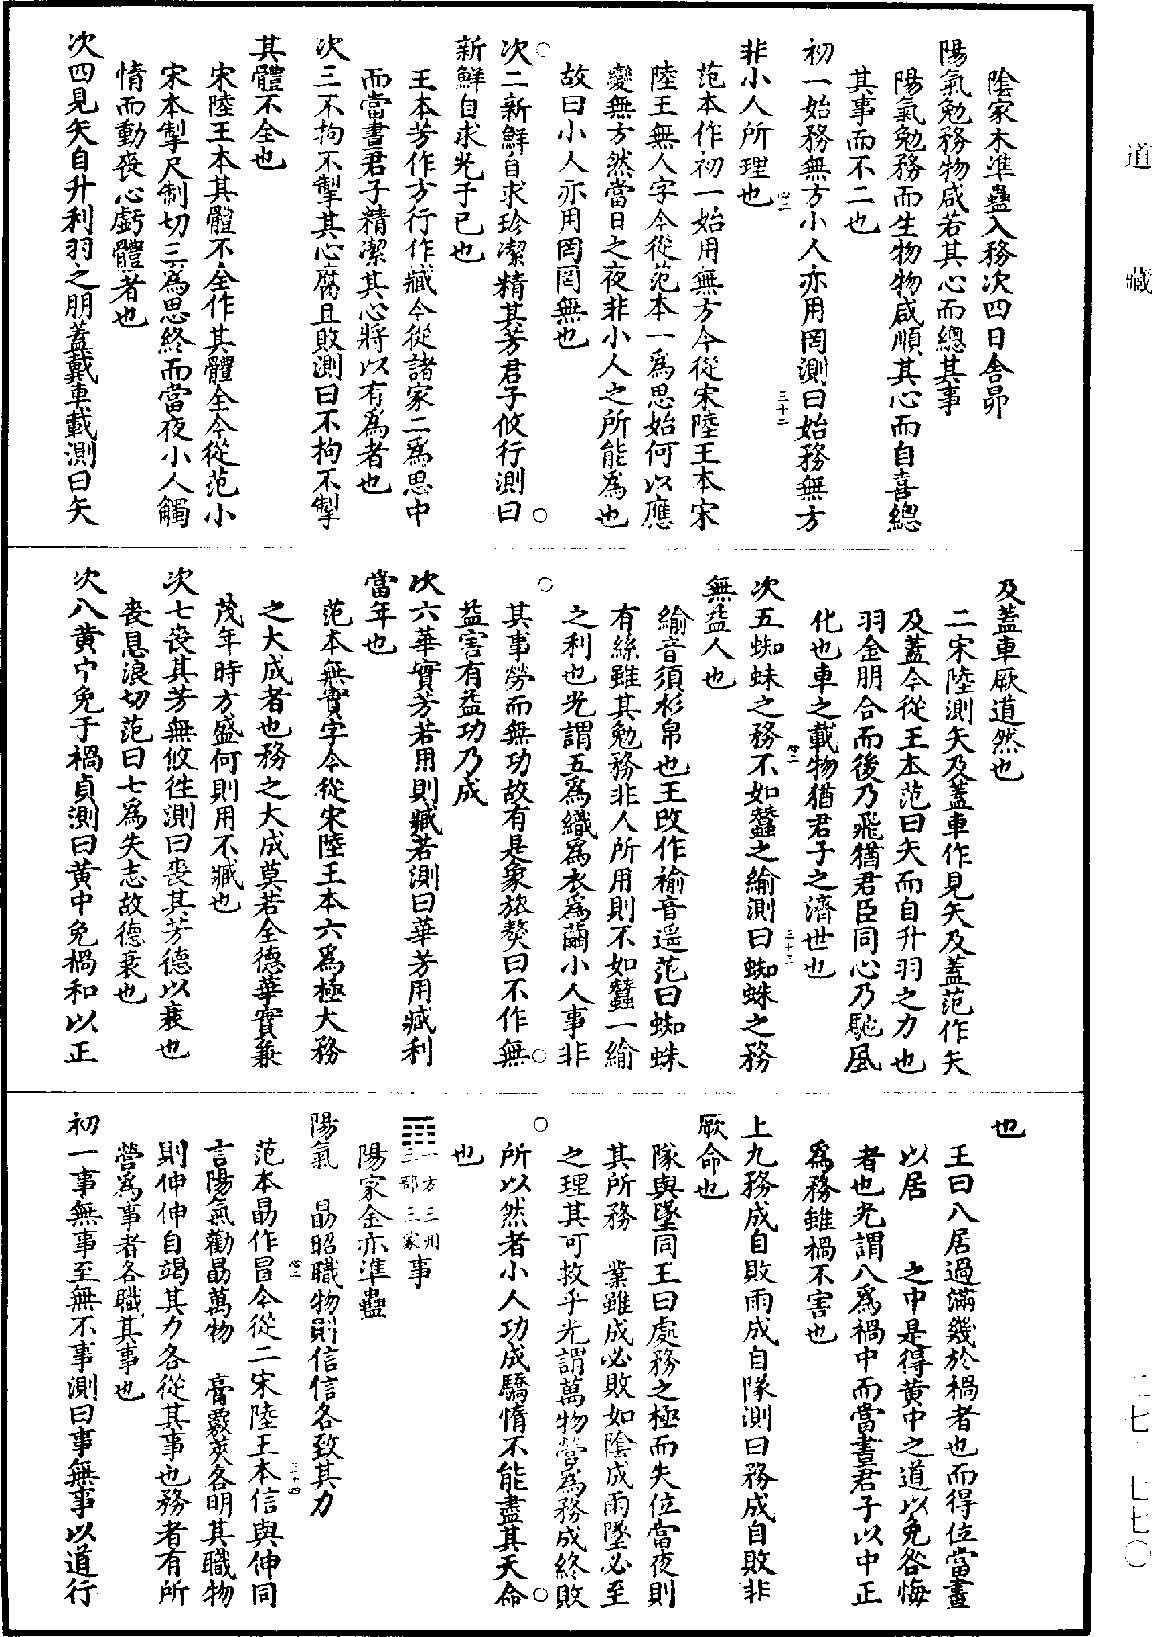 道藏
陰家木準蠱入務次四日舍昴
陽氣勉務物咸若其心而總其事
陽氣勉務而生物物咸順其心而自喜總
其事而不二也
初一始務無方小人亦用罔測曰始務無方
非小人所理也
范本作初一始用無方今從宋陸王本宋
陸王無人字今從范本一為思始何以應
變無方然當日之夜非小人之所能為也
故曰小人亦用罔罔無也
次二新鮮自求珍潔精其芳君子攸行測曰
新鮮自求光于已也
王本芳作方行作臧今從諸家二為思中
而當晝君子精潔其心將以有為者也
次三不拘不掣其心腐且敗測曰不拘不掣
其體不全也
宋陸王本其體不全作其體全今從范小
宋本掣尺制切三為思終而當夜小人觸
情而動喪心虧體者也
次四見矢自升利羽之朋蓋戴車載測曰矢
及蓋車厥道然也
二宋陸測矢及蓋車作見矢及蓋范作矢
及蓋今從王本范曰矢而自升羽之力也
羽金朋合而後乃飛猶君臣同心乃馳風
化也車之載物猶君子之濟世也
次五蜘蛛之務不如蠶之緰測曰蜘蛛之務
無益人也
緰音須杉帛也王改作褕音遥范曰蜘蛛
有絲雖其勉務非人所用則不如蠶一緰
之利也光謂五為織為衣為繭小人事非
其事勞而無功故有是象旅獒曰不作無
益害有益功乃成
次六華實芳若用則臧若測曰華芳用臧利
當年也
范本無實字今從宋陸王本六為極大務
之大成者也務之大成莫若全德華實兼
茂年時方盛何則用不臧也
次七喪其芳無攸往測曰喪其芳德以衰也
喪息浪切范曰七為失志故德衰也
次八黃中免于禍貞測曰黃中免禍和以正
也
王曰八居過滿幾於禍者也而得位當晝
以居 之中是得黃中之道以免咎悔
者也光謂八為禍中而當晝君子以中正
為務雖禍不害也
上九務成自敗雨成自隊測曰務成自敗非
厥命也
隊與墜同王曰處務之極而失位當夜則
其所務 業雖成必敗如陰成雨墜必至
之理其可救乎光謂萬物營為務成終敗
所以然者小人功成驕惰不能盡其天命
也
一方三州三部三家事
陽家金亦準蠱
陽氣 勗昭職物則信信各致其力
范本勗作冒今從二宋陸王本信與伸同
言陽氣勸勗萬物 各明其職物
則伸伸自竭其力各從其事也務者有所
營為事者各職其事也
初一事無事至無不事測曰事無事以道行
二七 七七〇